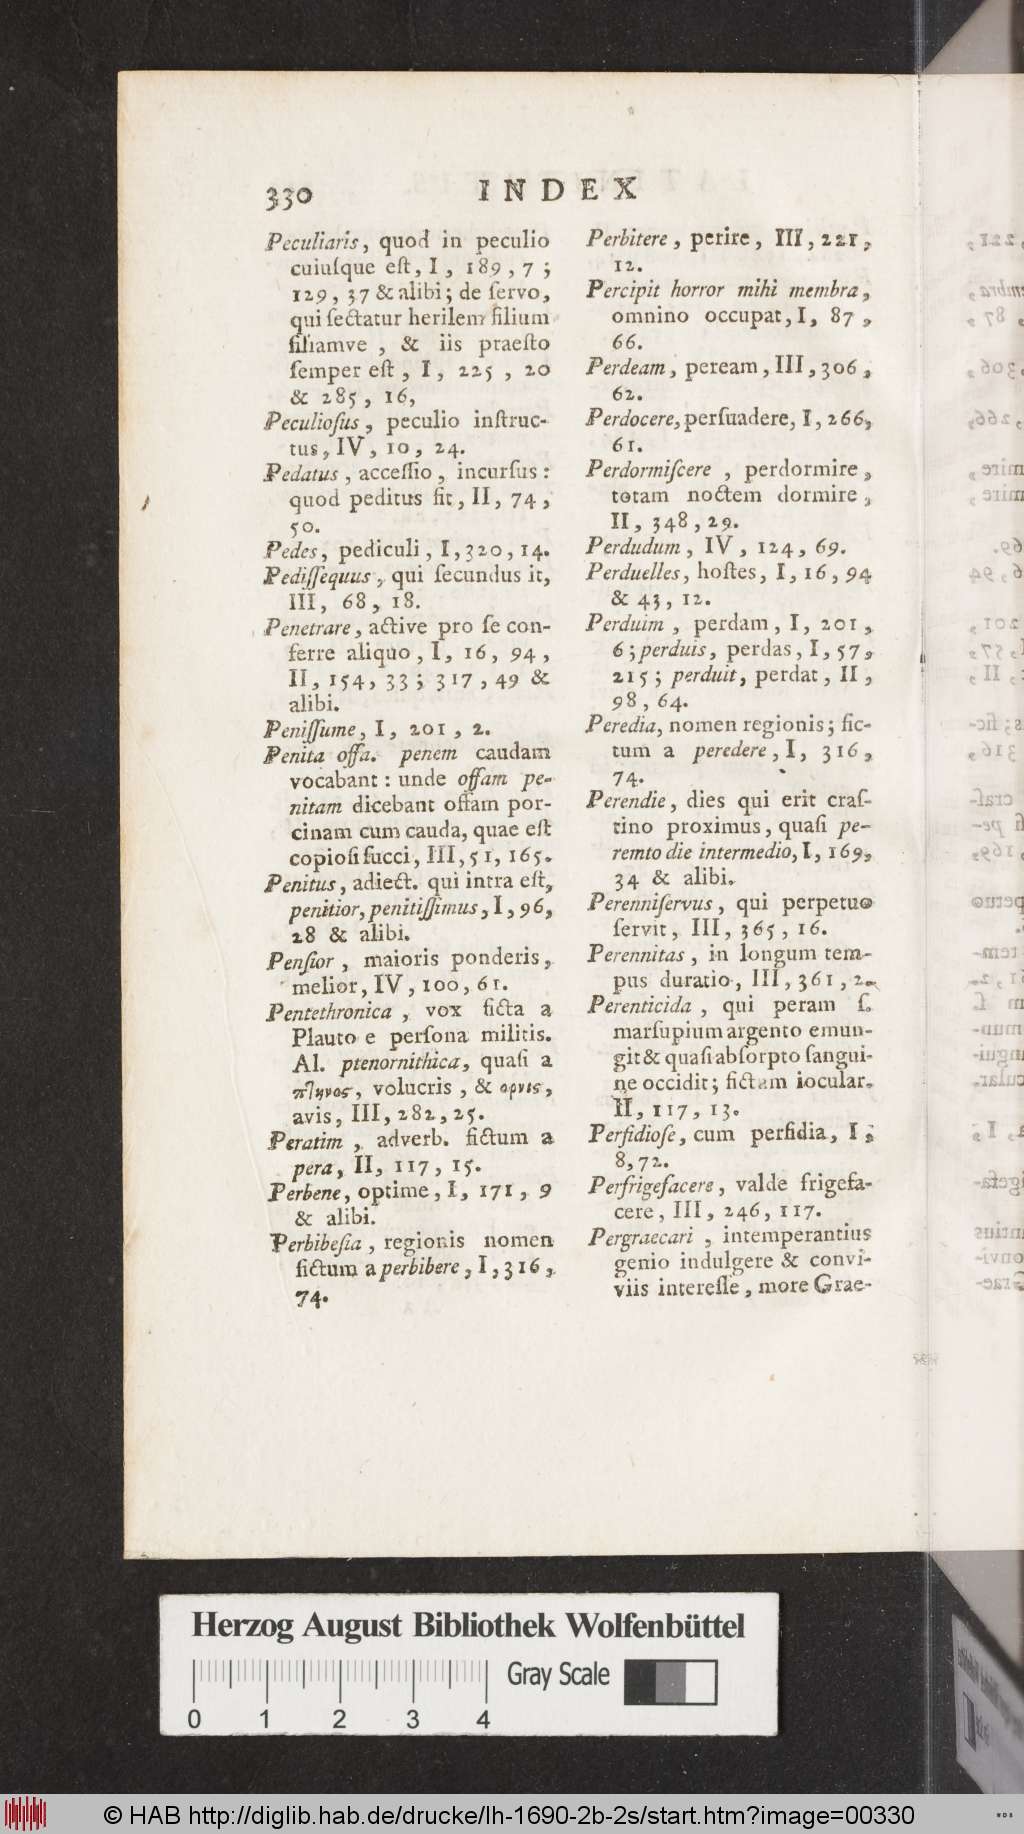 330
INDEX
Peculiaris, quod in peculio
cuiuſque eſt, I, 189, 7;
129, 37 & alibi; de ſervo,
qui ſectatur herilem filium
filiamve, & iis praeſto
ſemper eſt, I, 225, 20
& 285, 16,
Peculioſus, peculio inſtruc-
tus, IV, 10, 24.
Pedatus, acceſſio, incurſus:
quod peditus fit, II, 74,
50.
Pedes, pediculi, I, 320, 14.
Pediſſequus, qui ſecundus it,
III, 68, 18.
Penetrare, active pro ſe con-
ferre aliquo, I, 16, 94,
II, 154, 33; 317, 49 &
alibi.
Peniſſume, I, 201, 2.
Penita offa. penem caudam
vocabant: unde offam pe-
nitam dicebant offam por-
cinam cum cauda, quae eſt
copioſi ſucci, III, 51, 165.
Penitus, adiect. qui intra eſt,
penitior, penitiſſimus, I, 96,
28 & alibi.
Penſior, maioris ponderis,
melior, IV, 100, 61.
Pentethronica, vox ficta a
Plauto e perſona militis.
Al. ptenornithica, quaſi a
πῖηνος, volucris, & ορνις,
avis, III, 282, 25.
Peratim, adverb. fictum a
pera, II, 117, 15.
Perbene, optime, I, 171, 9
& alibi.
Perbibeſia, regionis nomen
fictum a perbibere, I, 316,
74.
Perbitere, perire, III, 221,
12.
Percipit horror mihi membra,
omnino occupat, I, 87,
66.
Perdeam, peream, III, 306,
62.
Perdocere, perſuadere, I, 266,
61.
Perdormiſcere, perdormire,
totam noctem dormire,
II, 348, 29.
Perdudum, IV, 124, 69.
Perduelles, hoſtes, I, 16, 94
& 43, 12.
Perduim, perdam, I, 201,
6; perduis, perdas, I, 57,
215; perduit, perdat, II,
98, 64.
Peredia, nomen regionis; fic-
tum a peredere, I, 316,
74.
Perendie, dies qui erit craſ-
tino proximus, quaſi pe-
remto die intermedio, I, 169,
34 & alibi.
Perenniſervus, qui perpetuo
ſervit, III, 365, 16.
Perennitas, in longum tem-
pus duratio, III, 361, 2.
Perenticida, qui peram ſ.
marſupium argento emun-
git & quaſi abſorpto ſangui-
ne occidit; fictum iocular.
II, 117, 13.
Perfidioſe, cum perfidia, I,
8, 72.
Perfrigefacere, valde frigefa-
cere, III, 246, 117.
Pergraecari, intemperantius
genio indulgere & convi-
viis intereſſe, more Grae-
Herzog August Bibliothek Wolfenbüttel
Gray Scale
0 1 2 3 4
© HAB http://diglib.hab.de/drucke/lh-1690-2b-2s/start.htm?image=00330